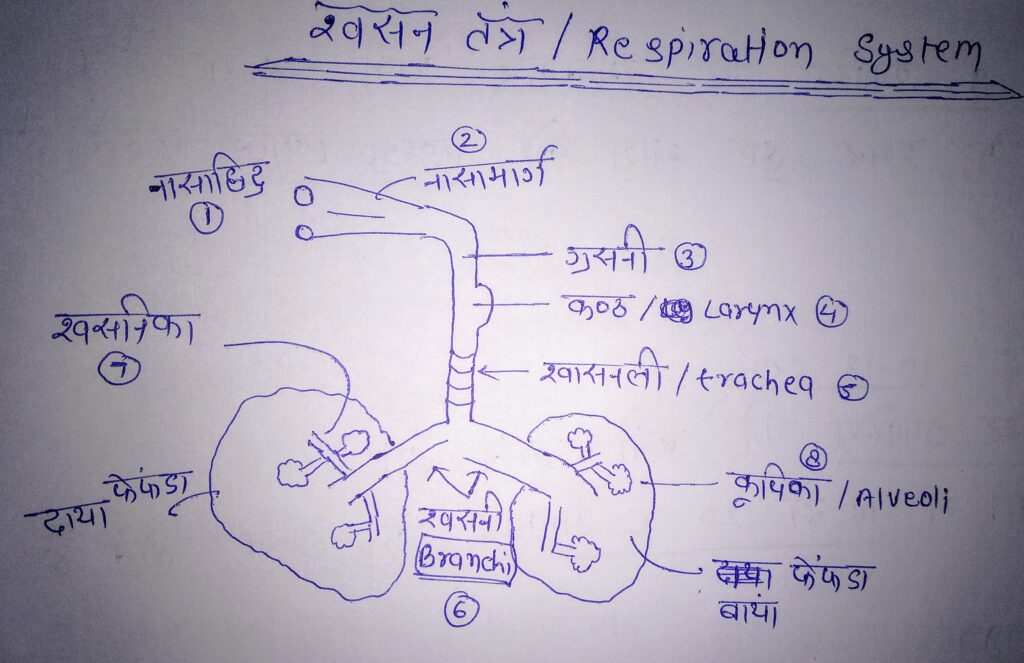 श्वसन तंत्र / Respiration System
② नासामार्ग
नासाछिद्र ①
ग्रसनी ③
कण्ठ / Larynx ④
श्वसनिका ⑦
श्वासनली / trachea ⑤
दाया फेफंडा
श्वसनी
Branchi
⑥
⑧
कूपिका / Alveoli
फेंफडा
बायां